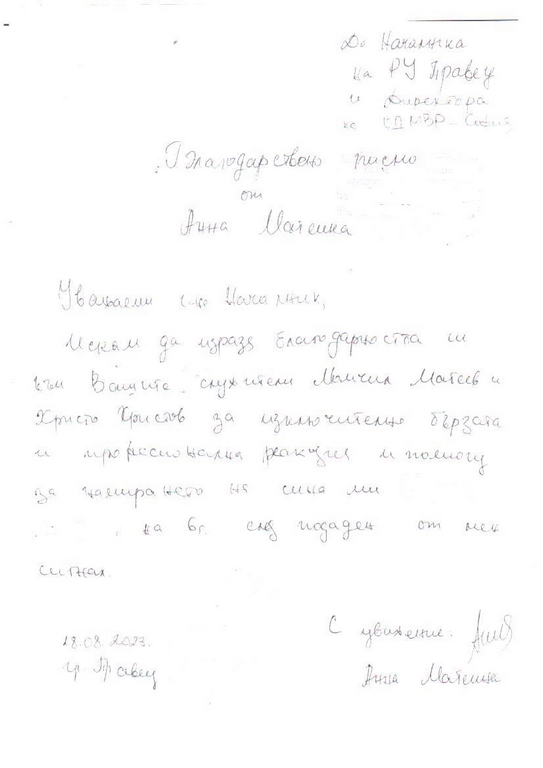 До Началника
на РУ Правец
и Директора
на СДМВР - София
Благодарствено писмо
от
Анна Матеина
Уважаеми г-не Началник,
Искам да изразя благодарността си
към Вашите служители Момчил Матеев и
Христо Христов за изключително бързата
и професионална реакция и помощ
за намирането на сина ми
на 6г. след подаден от мен
сигнал.
С уважение:
18.08.2023г.
гр. Правец
Анна Матеина